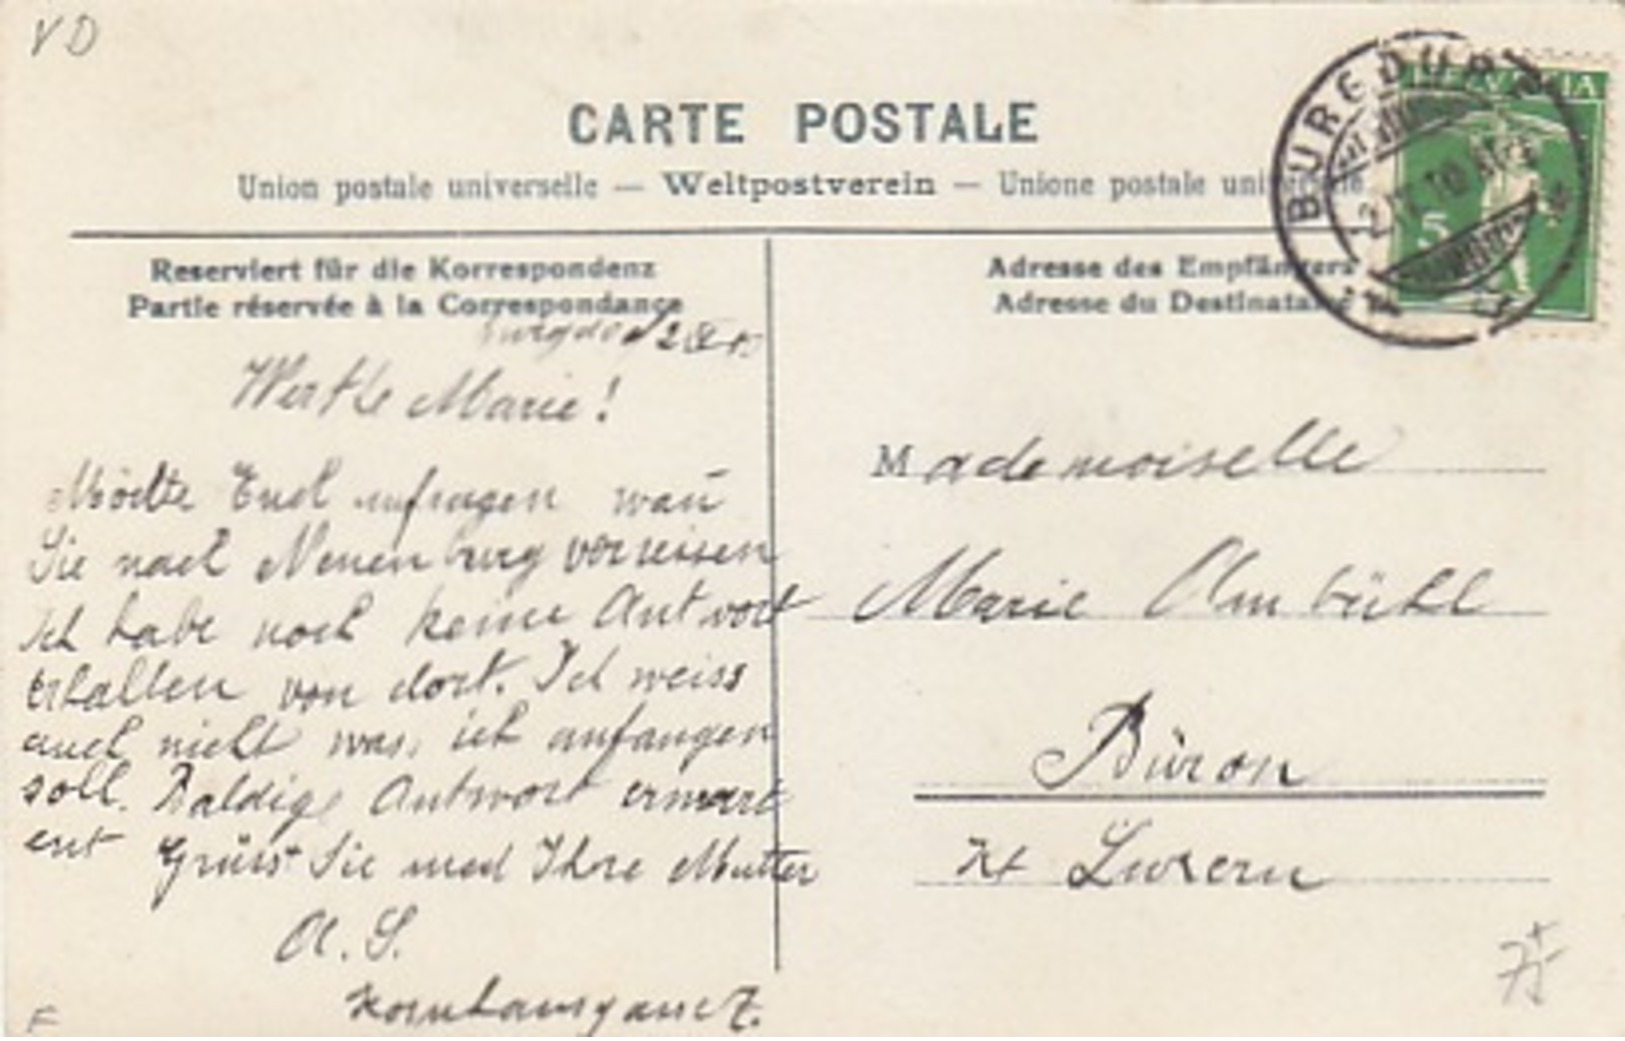 VD
CARTE POSTALE
Union postale universelle — Weltpostverein — Unione postale universale
Reserviert für die Korrespondenz
Partie réservée à la Correspondance
Adresse des Empfängers
Adresse du Destinataire
BURGDORF
HELVETIA
5
Burgdorf 2 IV 10
Werthe Marie!
Möchte Euch anfragen wan̄
Sie nach Neuenburg verreisen
Ich habe noch keine Antwort
erhalten von dort. Ich weiss
auch nicht was, ich anfangen
soll. Baldige Antwort erwart
ent Grüsst Sie und Ihre Mutter
A. S.
Kornhausgasse 7.
Mademoiselle
Marie Ambühl
Büron
Kt Luzern
F